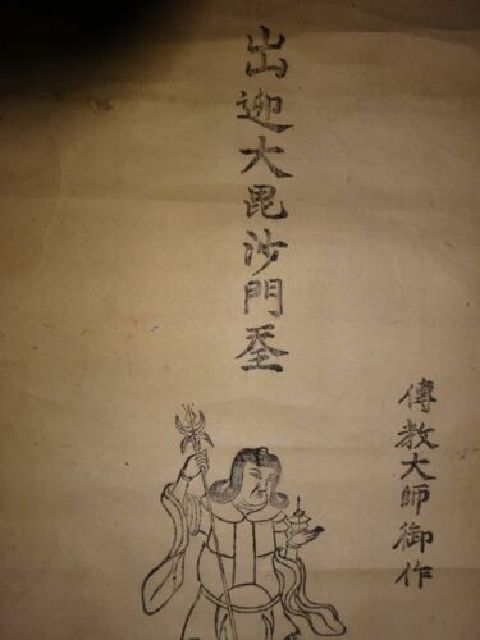 出迎大毘沙門天王
傳教大師御作